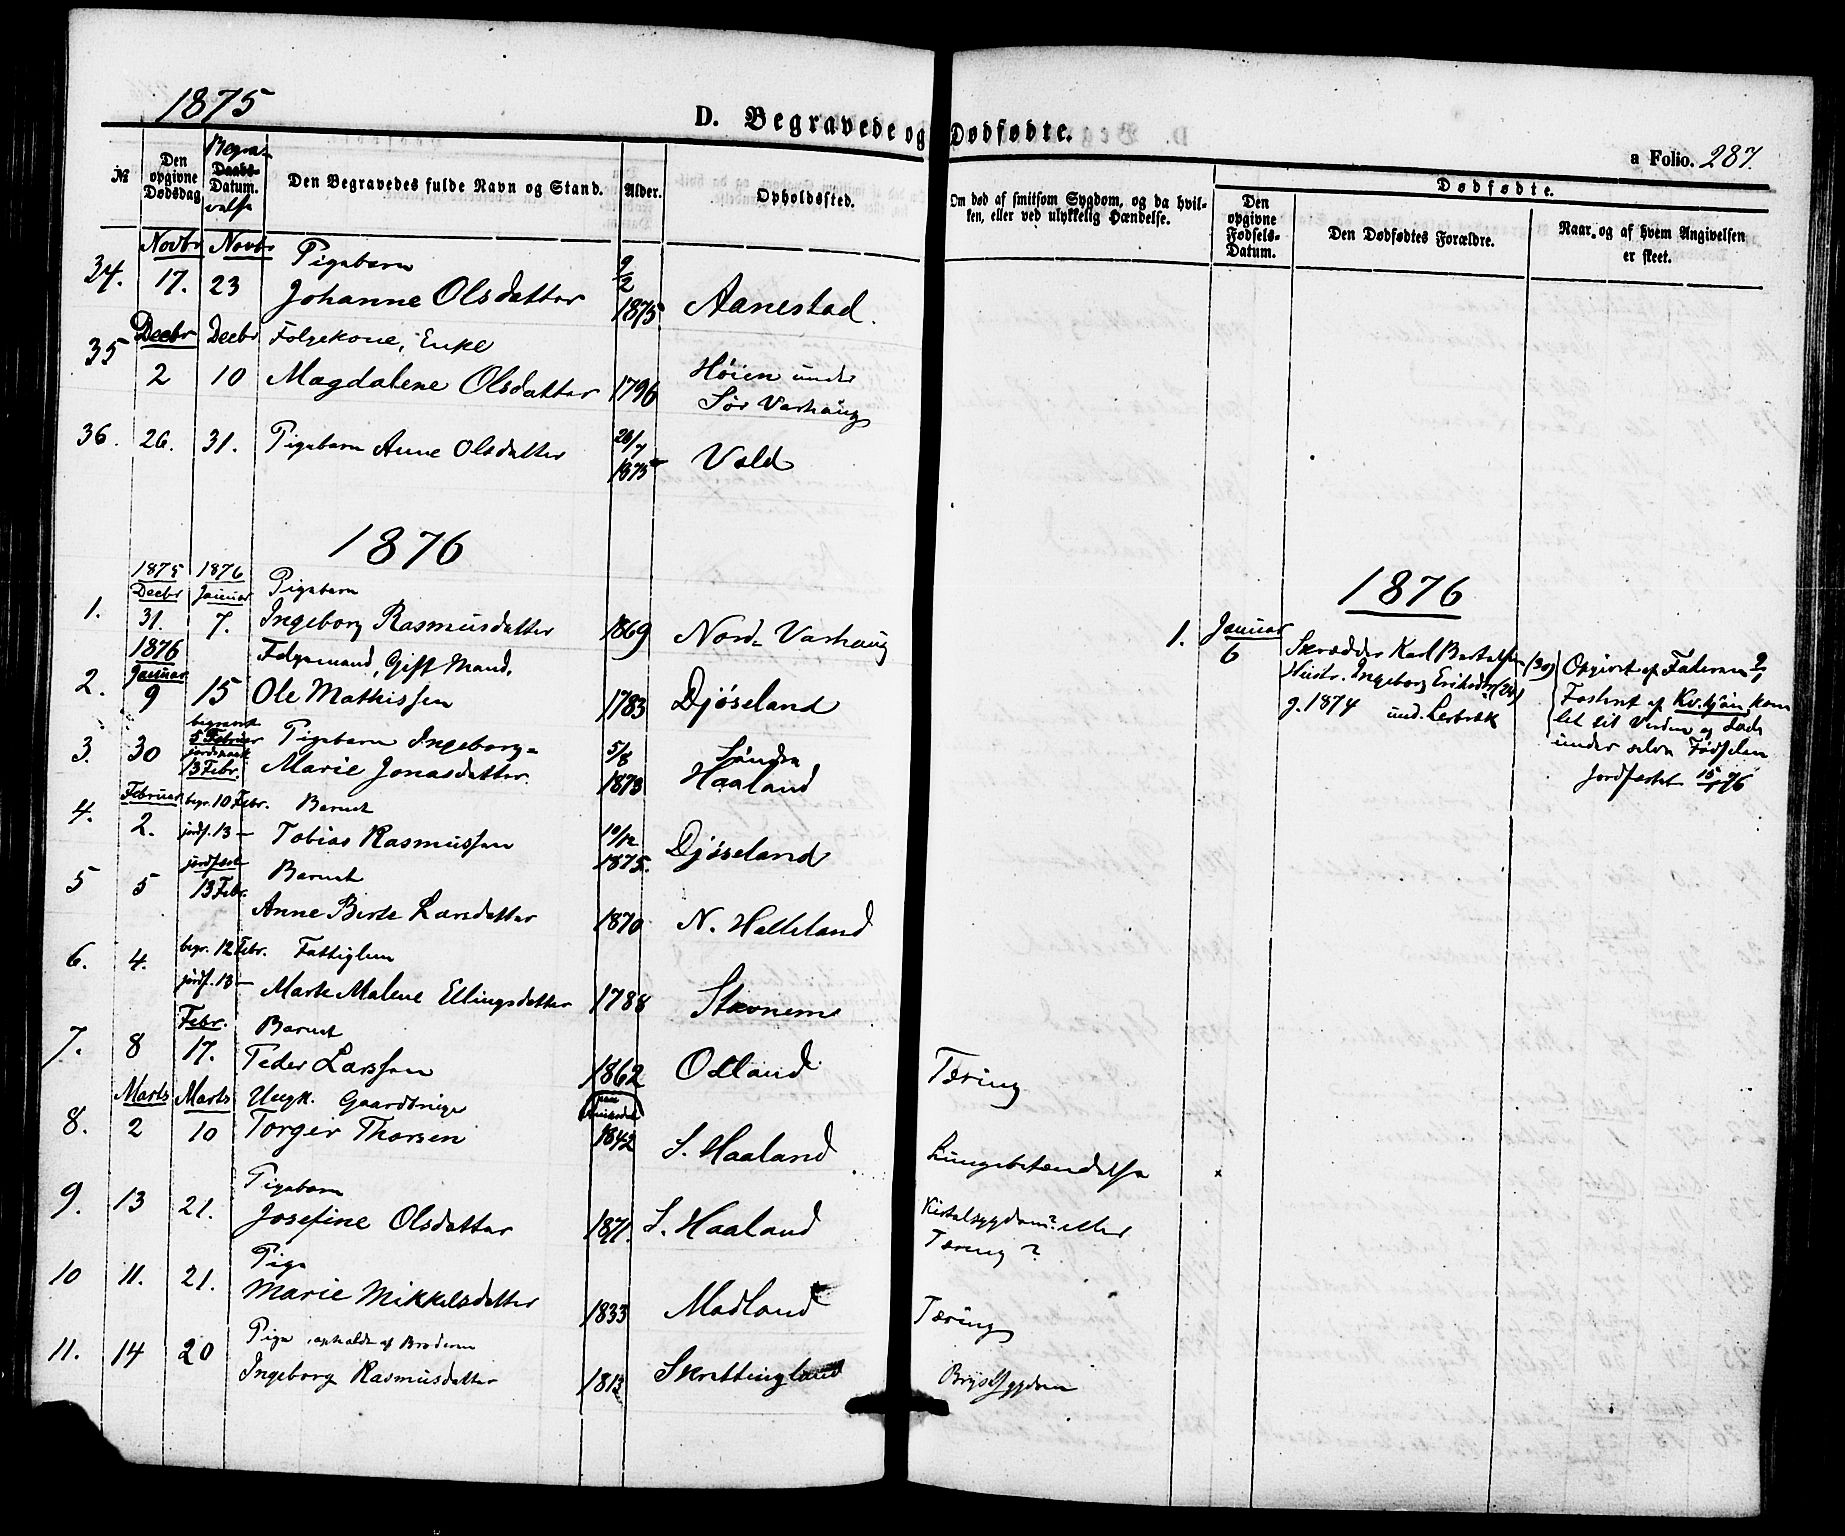 1875
D. Begravede og Dødfødte.
a Folio. 287.
№
Den opgivne Dødsdag
Begra-
Daabs-
Datum.
velse
Den Begravedes fulde Navn og Stand.
Alder.
Opholdssted.
Om død af smitsom Sygdom, og da hvil-
ken, eller ved ulykkelig Hændelse.
Dødfødte.
Den opgivne Fødsels-Datum.
Den Dødfødtes Forældre.
Naar, og af hvem Angivelsen er skeet.
Novbr Novbr Pigebarn 9/2
34. 17. 23 Johanne Olsdatter 1875 Aanestad.
Decbr Decbr Følgekone, Enke
35 2 10 Magdalene Olsdatter 1796 Høien under
Sør Varhaug
36. 26. 31. Pigebarn Anne Olsdatter 1875 Vold
1876
1875 1876
Decbr Januar Pigebarn
1. 31. 7. Ingeborg Rasmusdatter 1869 Nord-Varhaug
1876 Følgemand, Gift Mand.
Januar
2. 9 15 Ole Mathissen 1783 Djøseland
begravet
5 Februar Pigebarn Ingeborg- 5/8 Søndre
3. 30 13 Febr. Marie Jonasdatter. 1873 Haaland
Februar begr. 10 Febr. Barnet 10/12
4. 2. jordf. 13 — Tobias Rasmussen 1875. Djøseland
jordfæst Barnet
5 5 13 Febr. Anne Berte Larsdatter 1870 N. Helleland
begr. 12 Febr. Fattiglem
6. 4. jordf. 13 — Marte Malene Ellingsdatter 1788 Stavnem
Febr. Barnet
7. 8 17. Peder Larssen 1862 Odland Tæring
Marts Marts Ungk. Gaardbruger
8. 2 10 Torger Thorsen 1842 S. Haaland Lungebetændelse
Pigebarn
9. 13 21. Josefine Olsdatter 1871. S. Haaland Kirtelsygdom? eller
Tæring?
Pige
10 11. 21. Marie Mikkelsdatter 1833 Madland Tæring
Pige, opholdt af Broderen
11. 14 20 Ingeborg Rasmusdatter 1813 Skrettingland Brystsygdom
1876
1. Januar
6
Skrædder Karl Bertelsen (30)
Hustr. Ingeborg Eriksdtr (24)
g. 1874 und. Lerbræk
Opgivet af Faderen
Fosteret af Kv.kjøn kom
let til Verden og døde
under selve Fødselen
jordfæstet 15/1 76